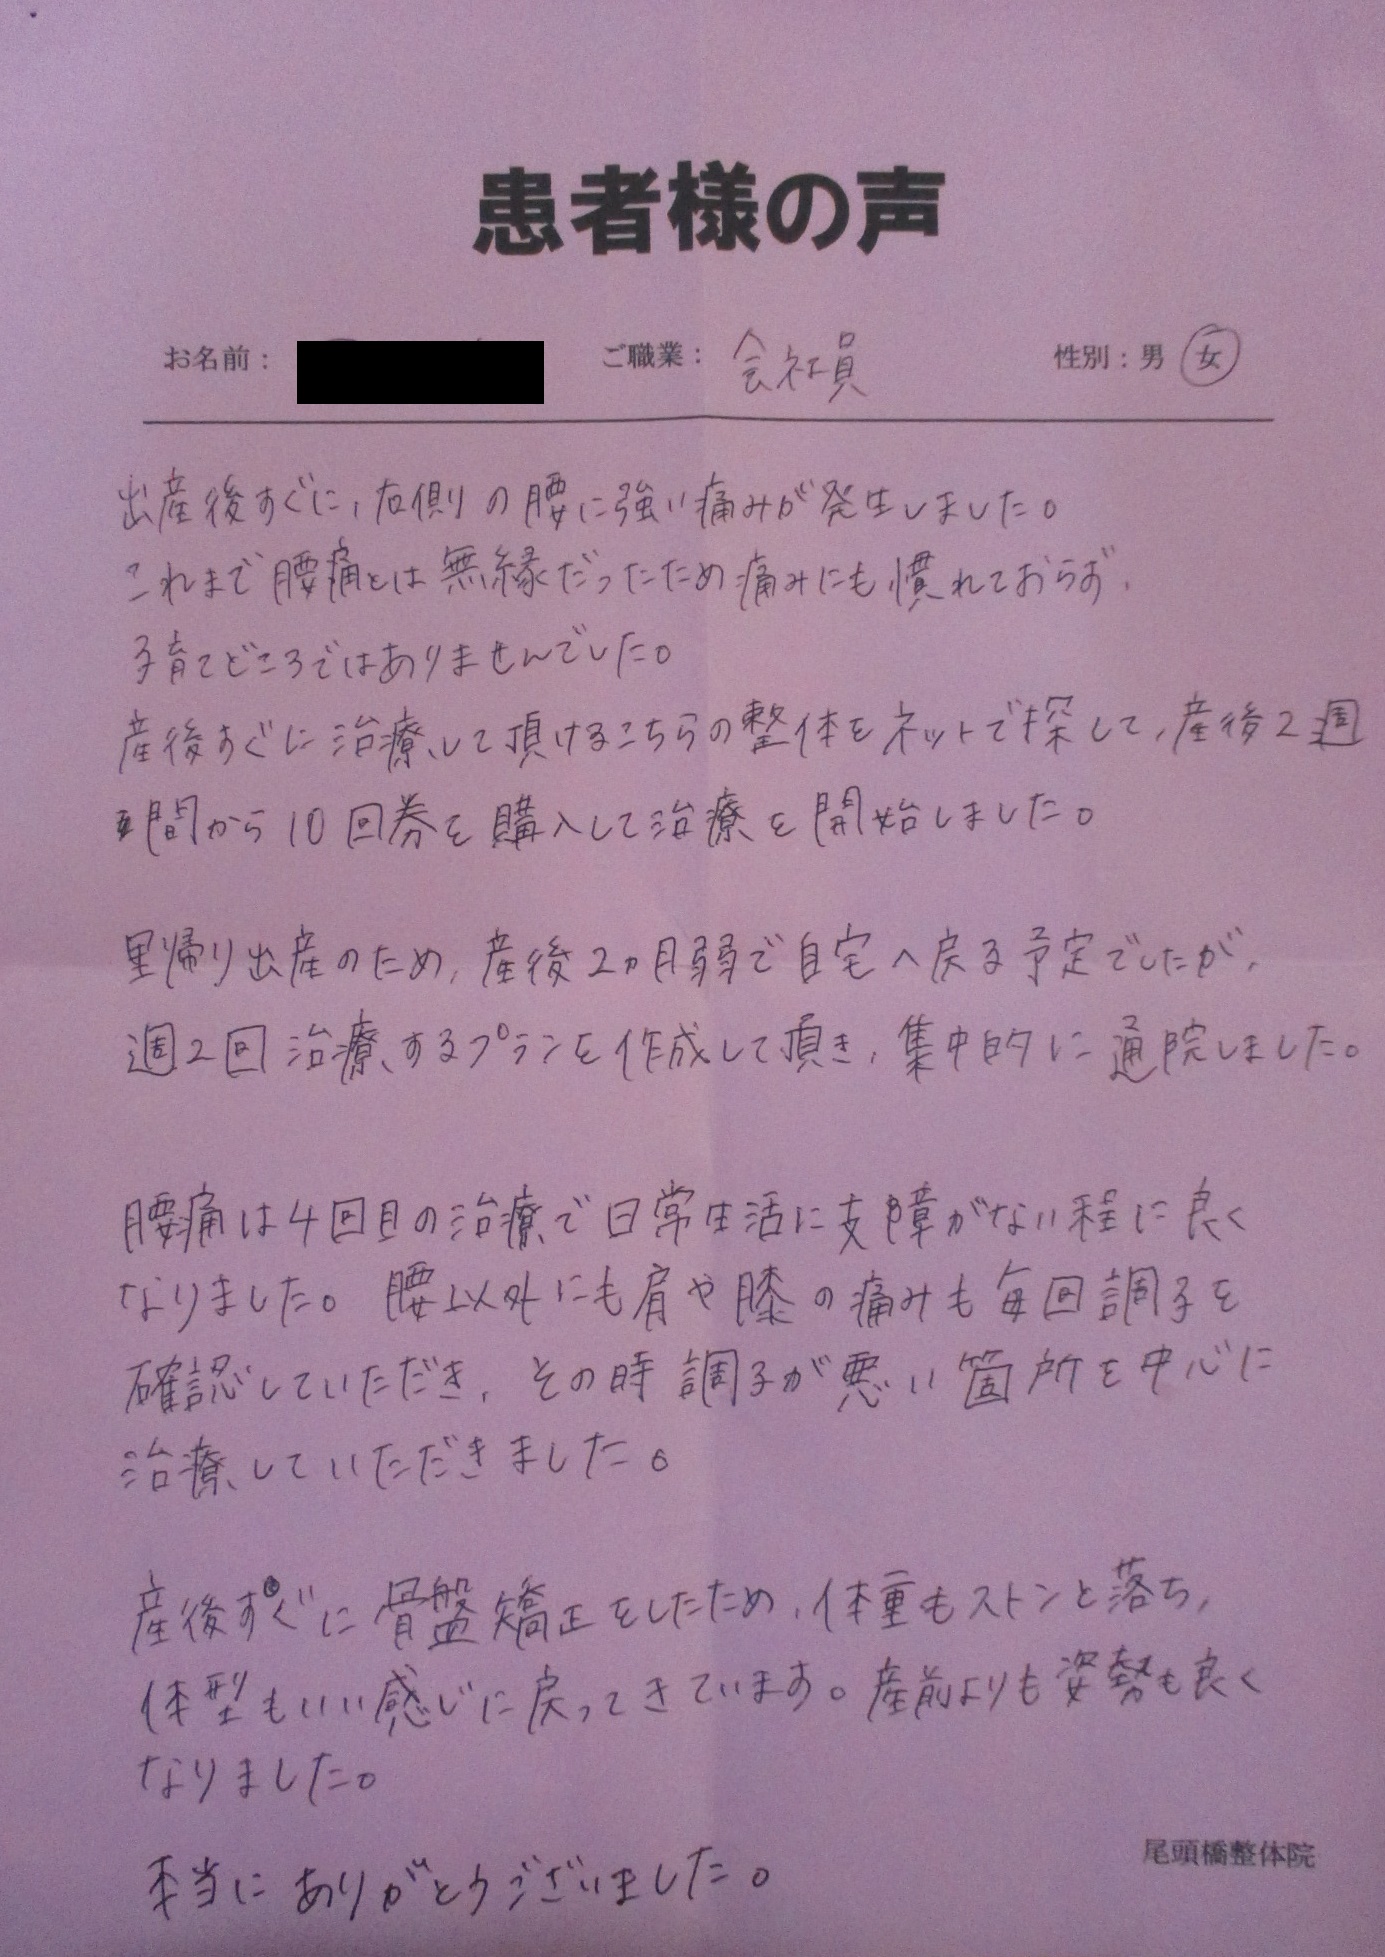 患者様の声
お名前: ご職業: 会社員 性別: 男 女
出産後すぐに、右側の腰に強い痛みが発生しました。
これまで腰痛とは無縁だったため痛みにも慣れておらず、
子育てどころではありませんでした。
産後すぐに治療して頂けるこちらの整体をネットで探して、産後2週
間から10回券を購入して治療を開始しました。
里帰り出産のため、産後2ヵ月弱で自宅へ戻る予定でしたが、
週2回治療するプランを作成して頂き、集中的に通院しました。
腰痛は4回目の治療で日常生活に支障がない程に良く
なりました。腰以外にも肩や膝の痛みも毎回調子を
確認していただき、その時調子が悪い箇所を中心に
治療していただきました。
産後すぐに骨盤矯正をしたため、体重もストンと落ち、
体型もいい感じに戻ってきています。産前よりも姿勢も良く
なりました。
本当にありがとうございました。
尾頭橋整体院